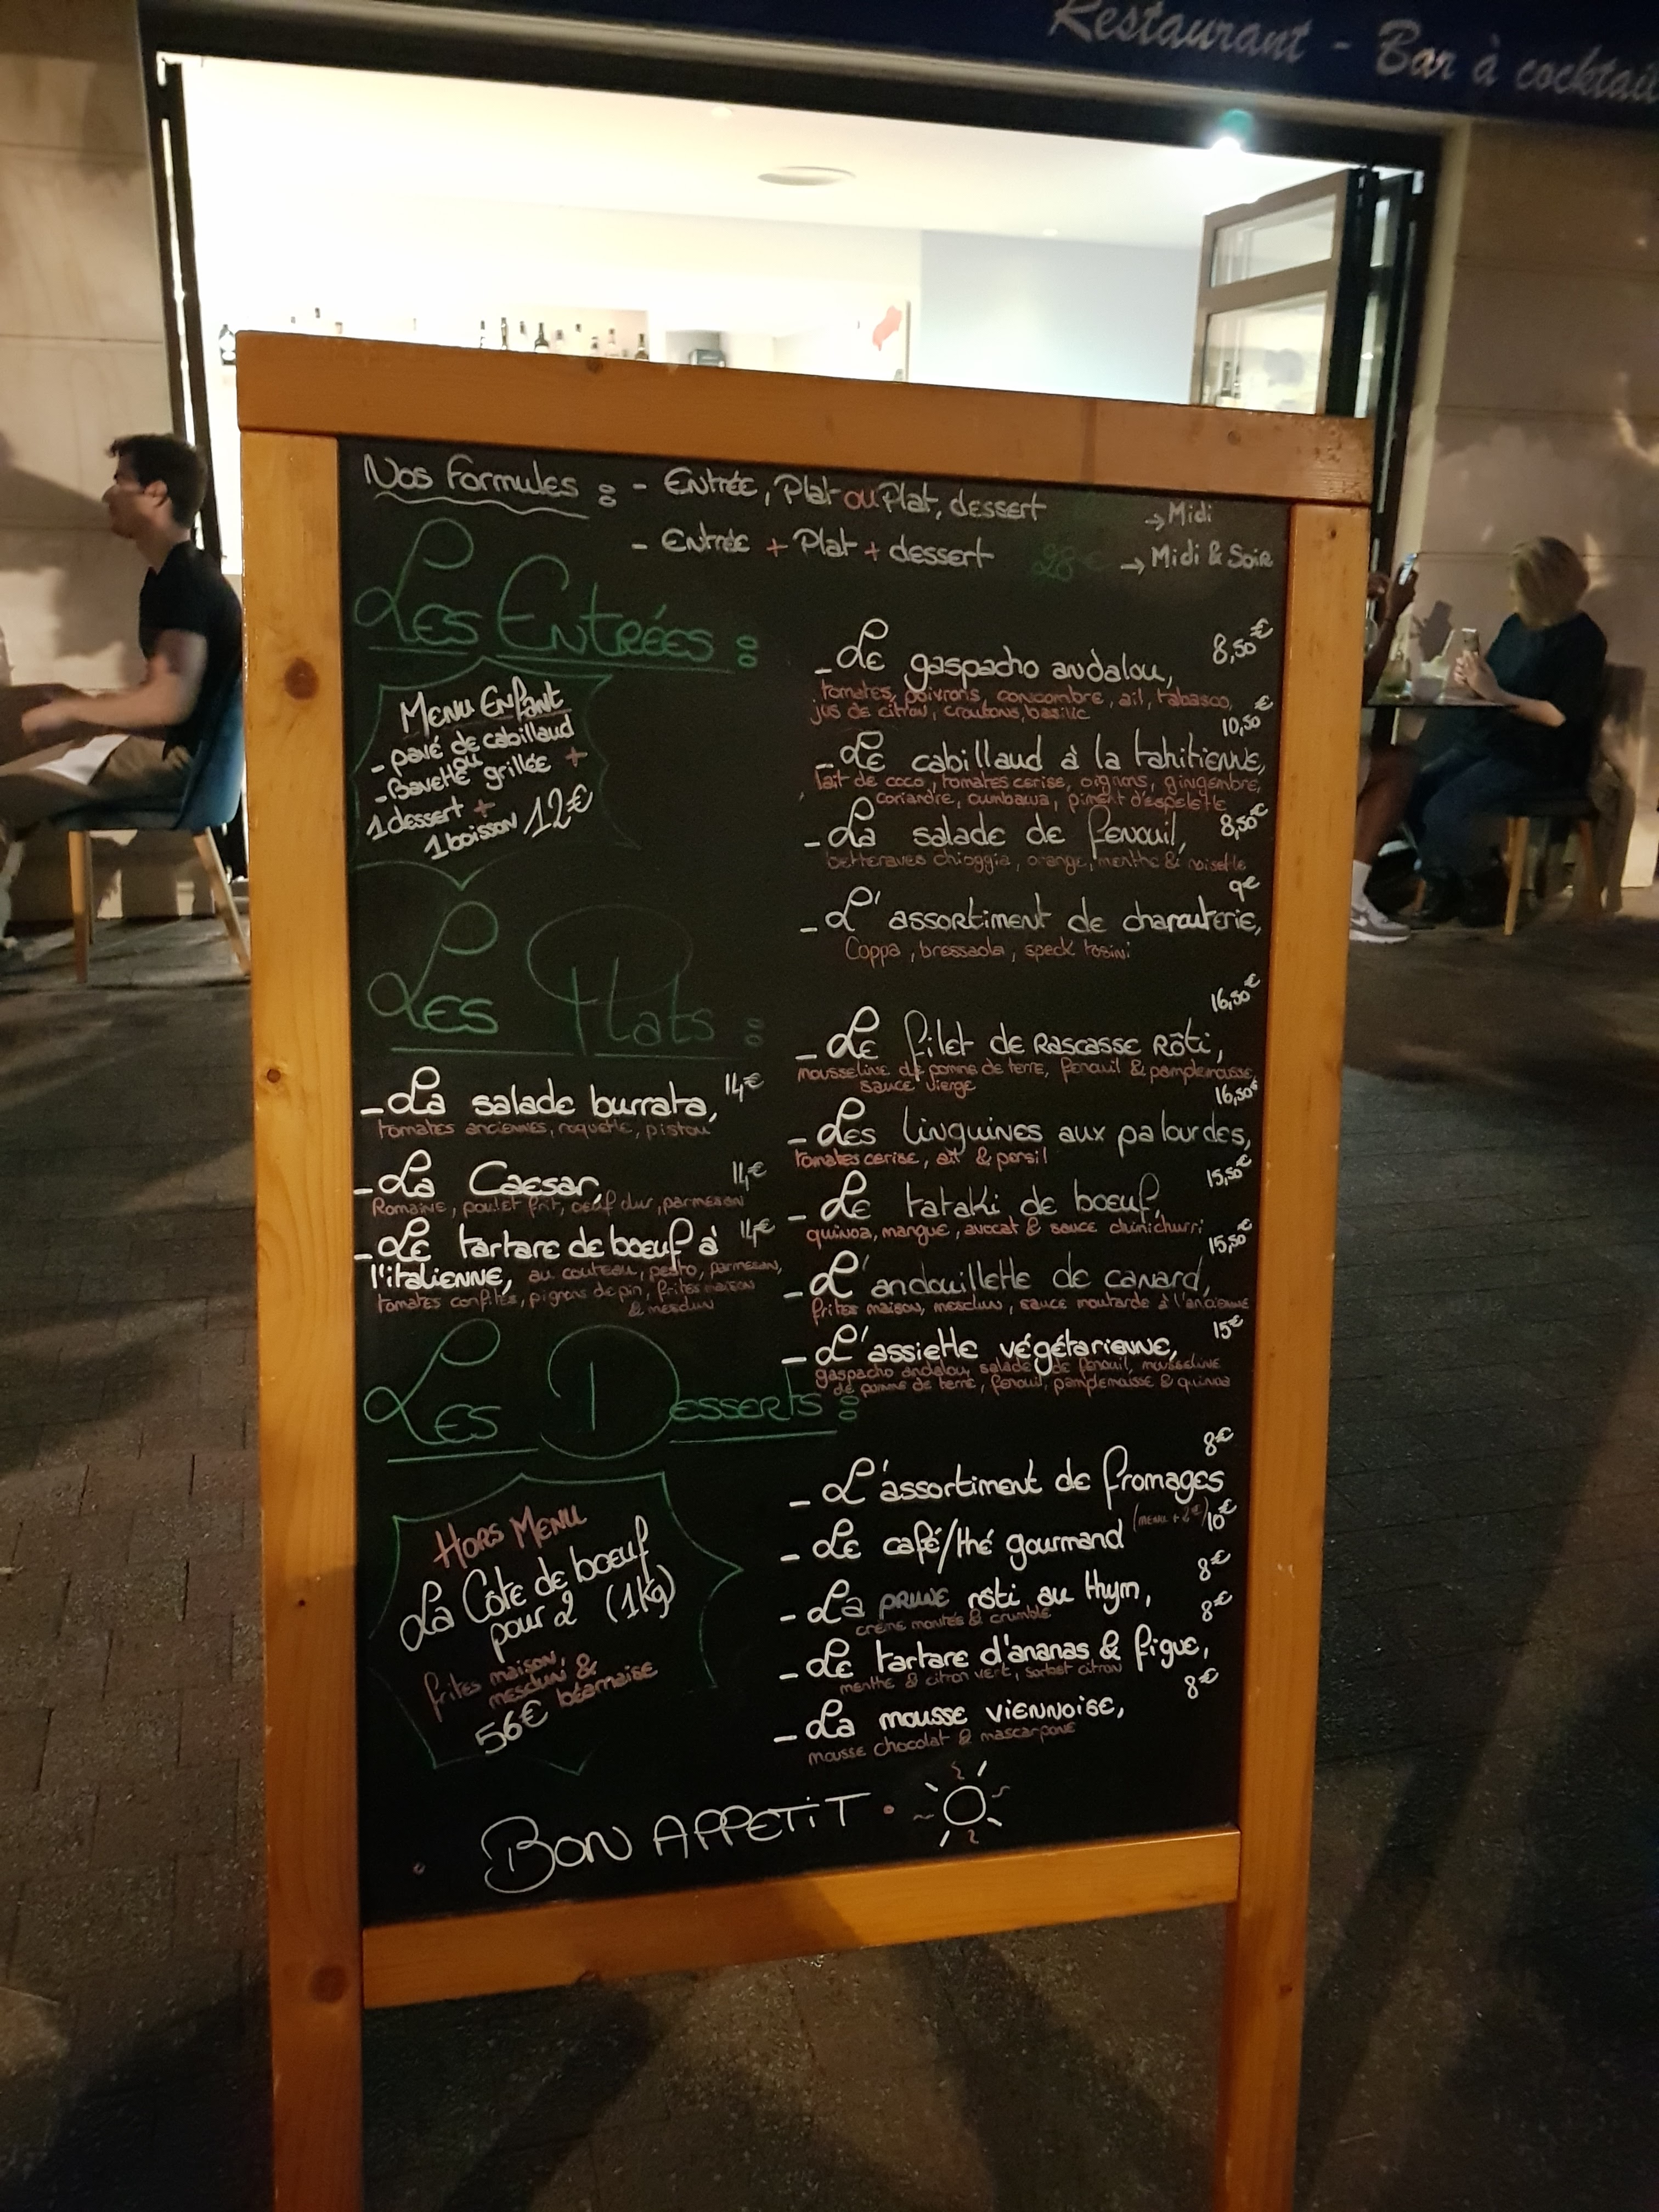 Restaurant - Bar à cocktail
Nos Formules : - Entrée, Plat ou Plat, dessert → Midi
- Entrée + Plat + dessert 28 € → Midi & Soir
Les Entrées :
Menu Enfant
- pavé de cabillaud
ou
- Bavette grillée +
1 dessert +
1 boisson 12€
8,50€
- Le gaspacho andalou,
tomates, poivrons, concombre, ail, tabasco,
jus de citron, croutons, basilic
10,50€
- Le cabillaud à la tahitienne,
lait de coco, tomates cerise, oignons, gingembre,
coriandre, cumbawa, piment d'espelette
- La salade de fenouil, 8,50€
betteraves chioggia, orange, menthe & noisette
9€
- L'assortiment de charcuterie,
Coppa, bressaola, speck
Les Plats :
- La salade burrata, 14€
tomates anciennes, roquette, pistou
- La Caesar, 14€
Romaine, poulet frit, oeuf dur, parmesan
- Le tartare de boeuf à 14€
l'italienne, au couteau, pesto, parmesan,
tomates confites, pignons de pin, frites maison
& mesclun
16,50€
- Le filet de Rascasse Rôti,
mousseline de pomme de terre, fenouil & pamplemousse,
sauce vierge
16,50€
- Les linguines aux palourdes,
tomates cerise, ail & persil
15,50€
- Le tataki de boeuf,
quinoa, mangue, avocat & sauce chimichurri
15,50€
- L'andouillette de canard,
frites maison, mesclun, sauce moutarde à l'ancienne
15€
- L'assiette végétarienne,
gaspacho andalou, salade de fenouil, mousseline
de pomme de terre, fenouil, pamplemousse & quinoa
Les Desserts :
Hors Menu
La Côte de boeuf
pour 2 (1Kg)
frites maison,
mesclun &
56€ béarnaise
8€
- L'assortiment de fromages
- Le café/thé gourmand (menu + 2€) 10€
8€
- La prune rôti au thym,
crème montés & crumble
8€
- Le tartare d'ananas & figue,
menthe & citron vert, sorbet citron
8€
- La mousse viennoise,
mousse chocolat & mascarpone
BON APPETIT